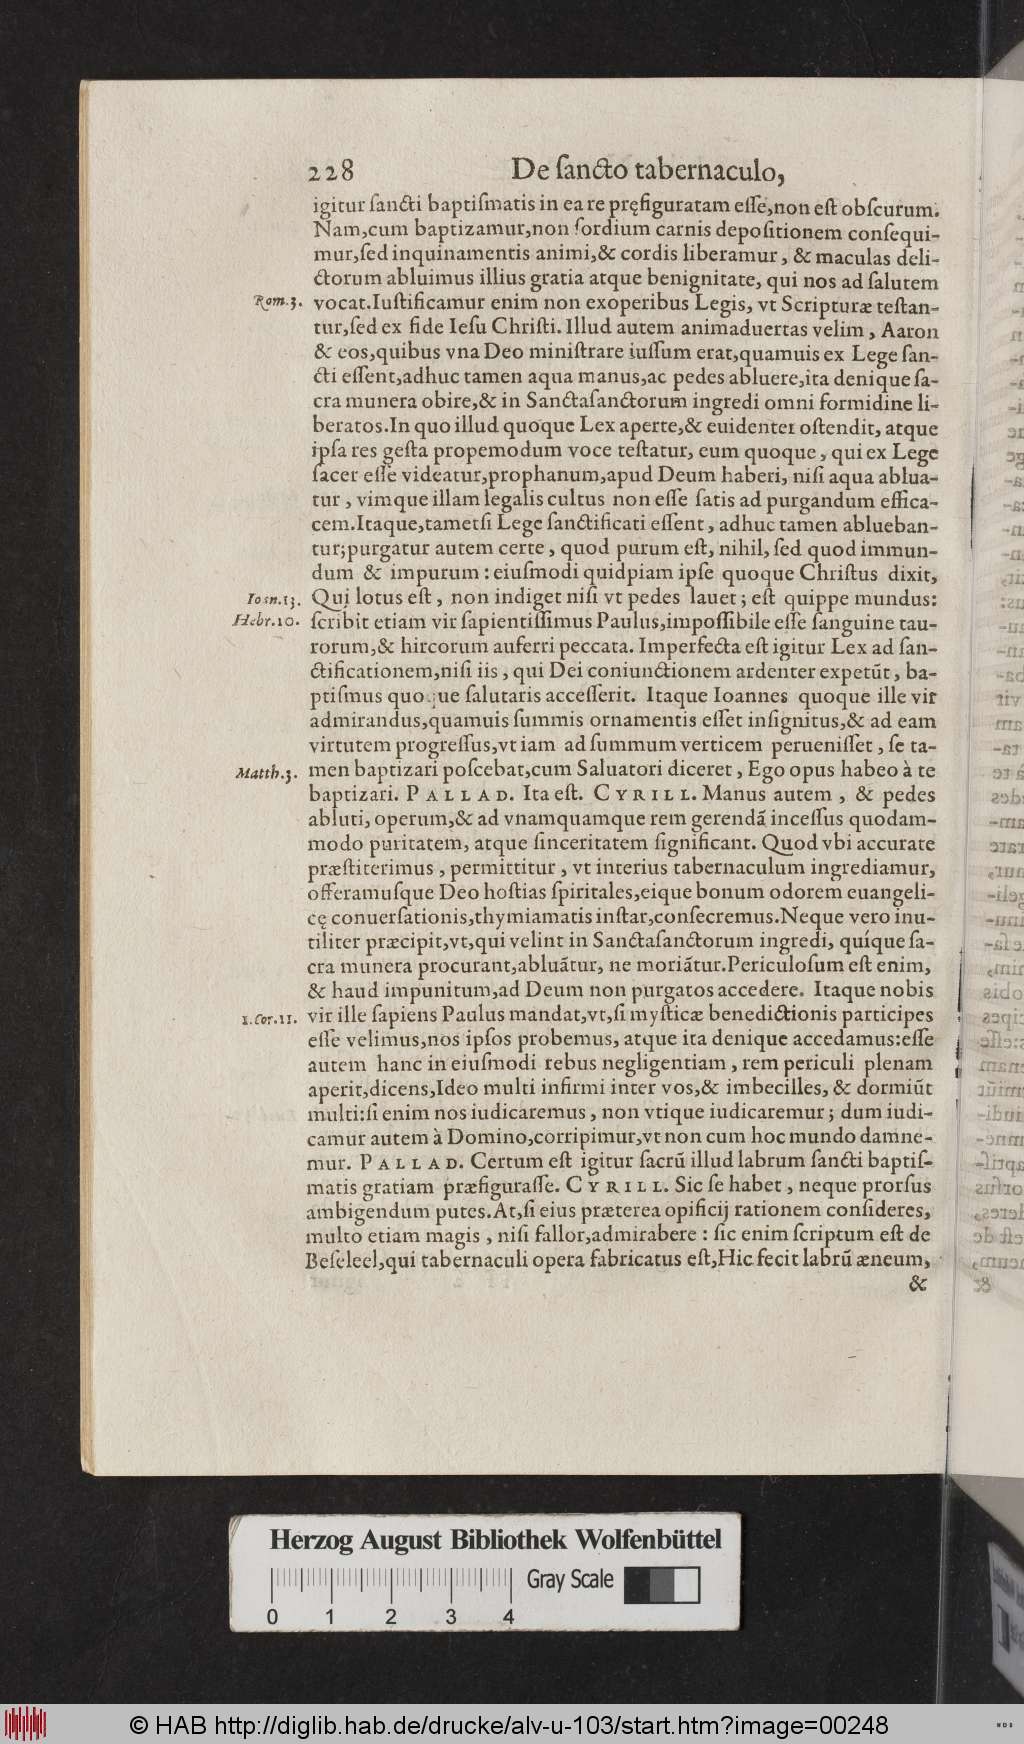 228 De ſancto tabernaculo,
igitur ſancti baptiſmatis in ea re pręfiguratam eſſe,non eſt obſcurum.
Nam,cum baptizamur,non ſordium carnis depoſitionem conſequi-
mur,ſed inquinamentis animi,& cordis liberamur, & maculas deli-
ctorum abluimus illius gratia atque benignitate, qui nos ad ſalutem
Rom.3. vocat.Iuſtificamur enim non exoperibus Legis, vt Scripturæ teſtan-
tur,ſed ex fide Ieſu Chriſti. Illud autem animaduertas velim, Aaron
& eos,quibus vna Deo miniſtrare iuſſum erat,quamuis ex Lege ſan-
cti eſſent,adhuc tamen aqua manus,ac pedes abluere,ita denique ſa-
cra munera obire,& in Sanctaſanctorum ingredi omni formidine li-
beratos.In quo illud quoque Lex aperte,& euidenter oſtendit, atque
ipſa res geſta propemodum voce teſtatur, eum quoque, qui ex Lege
ſacer eſſe videatur,prophanum,apud Deum haberi, niſi aqua ablua-
tur, vimque illam legalis cultus non eſſe ſatis ad purgandum effica-
cem.Itaque,tametſi Lege ſanctificati eſſent, adhuc tamen abluеban-
tur;purgatur autem certe, quod purum eſt, nihil, ſed quod immun-
dum & impurum: eiuſmodi quidpiam ipſe quoque Chriſtus dixit,
Ioan.13. Qui lotus eſt, non indiget niſi vt pedes lauet; eſt quippe mundus:
Hebr.10. ſcribit etiam vir ſapientiſſimus Paulus,impoſſibile eſſe ſanguine tau-
rorum,& hircorum auferri peccata. Imperfecta eſt igitur Lex ad ſan-
ctificationem,niſi iis, qui Dei coniunctionem ardenter expetũt, ba-
ptiſmus quoque ſalutaris acceſſerit. Itaque Ioannes quoque ille vir
admirandus,quamuis ſummis ornamentis eſſet inſignitus,& ad eam
virtutem progreſſus,vt iam ad ſummum verticem perueniſſet, ſe ta-
Matth.3. men baptizari poſcebat,cum Saluatori diceret, Ego opus habeo à te
baptizari. PALLAD. Ita eſt. CYRILL. Manus autem, & pedes
abluti, operum,& ad vnamquamque rem gerendã inceſſus quodam-
modo puritatem, atque ſinceritatem ſignificant. Quod vbi accurate
præſtiterimus, permittitur, vt interius tabernaculum ingrediamur,
offeramuſque Deo hoſtias ſpiritales,eique bonum odorem euangeli-
cę conuerſationis,thymiamatis inſtar,conſecremus.Neque vero inu-
tiliter præcipit,vt,qui velint in Sanctaſanctorum ingredi, quíque ſa-
cra munera procurant,abluãtur, ne moriãtur.Periculoſum eſt enim,
& haud impunitum,ad Deum non purgatos accedere. Itaque nobis
1.Cor.11. vir ille ſapiens Paulus mandat,vt,ſi myſticæ benedictionis participes
eſſe velimus,nos ipſos probemus, atque ita denique accedamus:eſſe
autem hanc in eiuſmodi rebus negligentiam, rem periculi plenam
aperit,dicens,Ideo multi infirmi inter vos,& imbecilles, & dormiũt
multi:ſi enim nos iudicaremus, non vtique iudicaremur; dum iudi-
camur autem à Domino,corripimur,vt non cum hoc mundo damne-
mur. PALLAD. Certum eſt igitur ſacrũ illud labrum ſancti baptiſ-
matis gratiam præfiguraſſe. CYRILL. Sic ſe habet, neque prorſus
ambigendum putes.At,ſi eius præterea opificij rationem conſideres,
multo etiam magis, niſi fallor,admirabere: ſic enim ſcriptum eſt de
Beſeleel,qui tabernaculi opera fabricatus eſt,Hic fecit labrũ æneum,
&
Herzog August Bibliothek Wolfenbüttel
Gray Scale
0 1 2 3 4
© HAB http://diglib.hab.de/drucke/alv-u-103/start.htm?image=00248